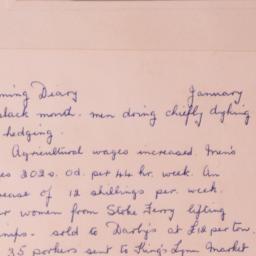 ming Diary January
slack month. men doing chiefly dyking
hedging.
Agricultural wages increased. Men's
es 202s. 0d. per 44 hr. week. An
ease of 12 shillings per week.
r women from Stoke Ferry lifting
mps. sold to Darby's at £12 per ton.
35 porkers sent to King's Lynn Market